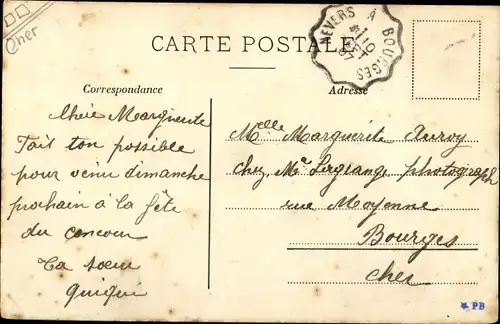 Cher
CARTE POSTALE
NEVERS À BOURGES
Correspondance
Adresse
Chère Marguerite
Fait ton possible
pour venir dimanche
prochain à la fête
du concour
Ta soeur
Guigui
Melle Marguerite
chez Mr Lagrange photograph
rue Moyenne
Bourges
Cher
PB